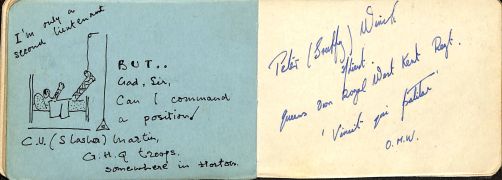 I'm only a
second lieutenant
BUT..
Gad, Sir,
Can I command
a position!
C.V. (Slasher) Martin,
G.H.Q Troops.
somewhere in
Peter (Snuffy) Winch.
Queens Own Royal West Kent Regt.
'Vincit qui patitur'
O.M.W.